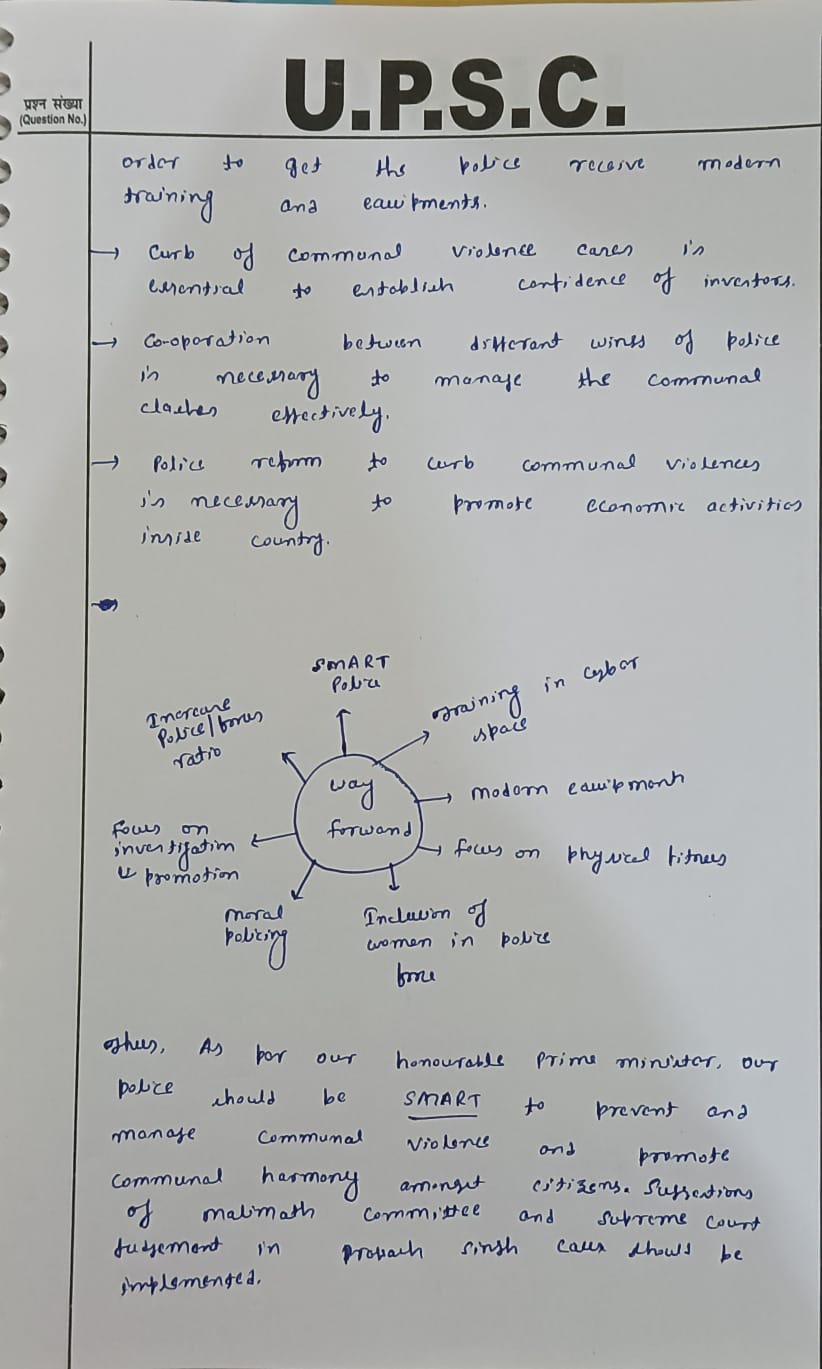 U.P.S.C.
प्रश्न संख्या
(Question No.)
order to get the police receive modern
training and equipments.
→ Curb of communal violence cases is
essential to establish confidence of investors.
→ Co-operation between different wings of police
is necessary to manage the communal
clashes effectively.
→ Police reform to curb communal violences
is necessary to promote economic activities
inside country.
SMART
Police
training in cyber
space
Increase
Police/
ratio
way
forward
→ modern equipment
focus on
investigation
& promotion
→ focus on physical fitness
moral
policing
Inclusion of
women in police
force
Thus, As per our honourable Prime minister, our
police should be SMART to prevent and
manage communal violence and promote
communal harmony amongst citizens. Suggestions
of malimath committee and supreme court
judgement in prakash singh case should be
implemented.